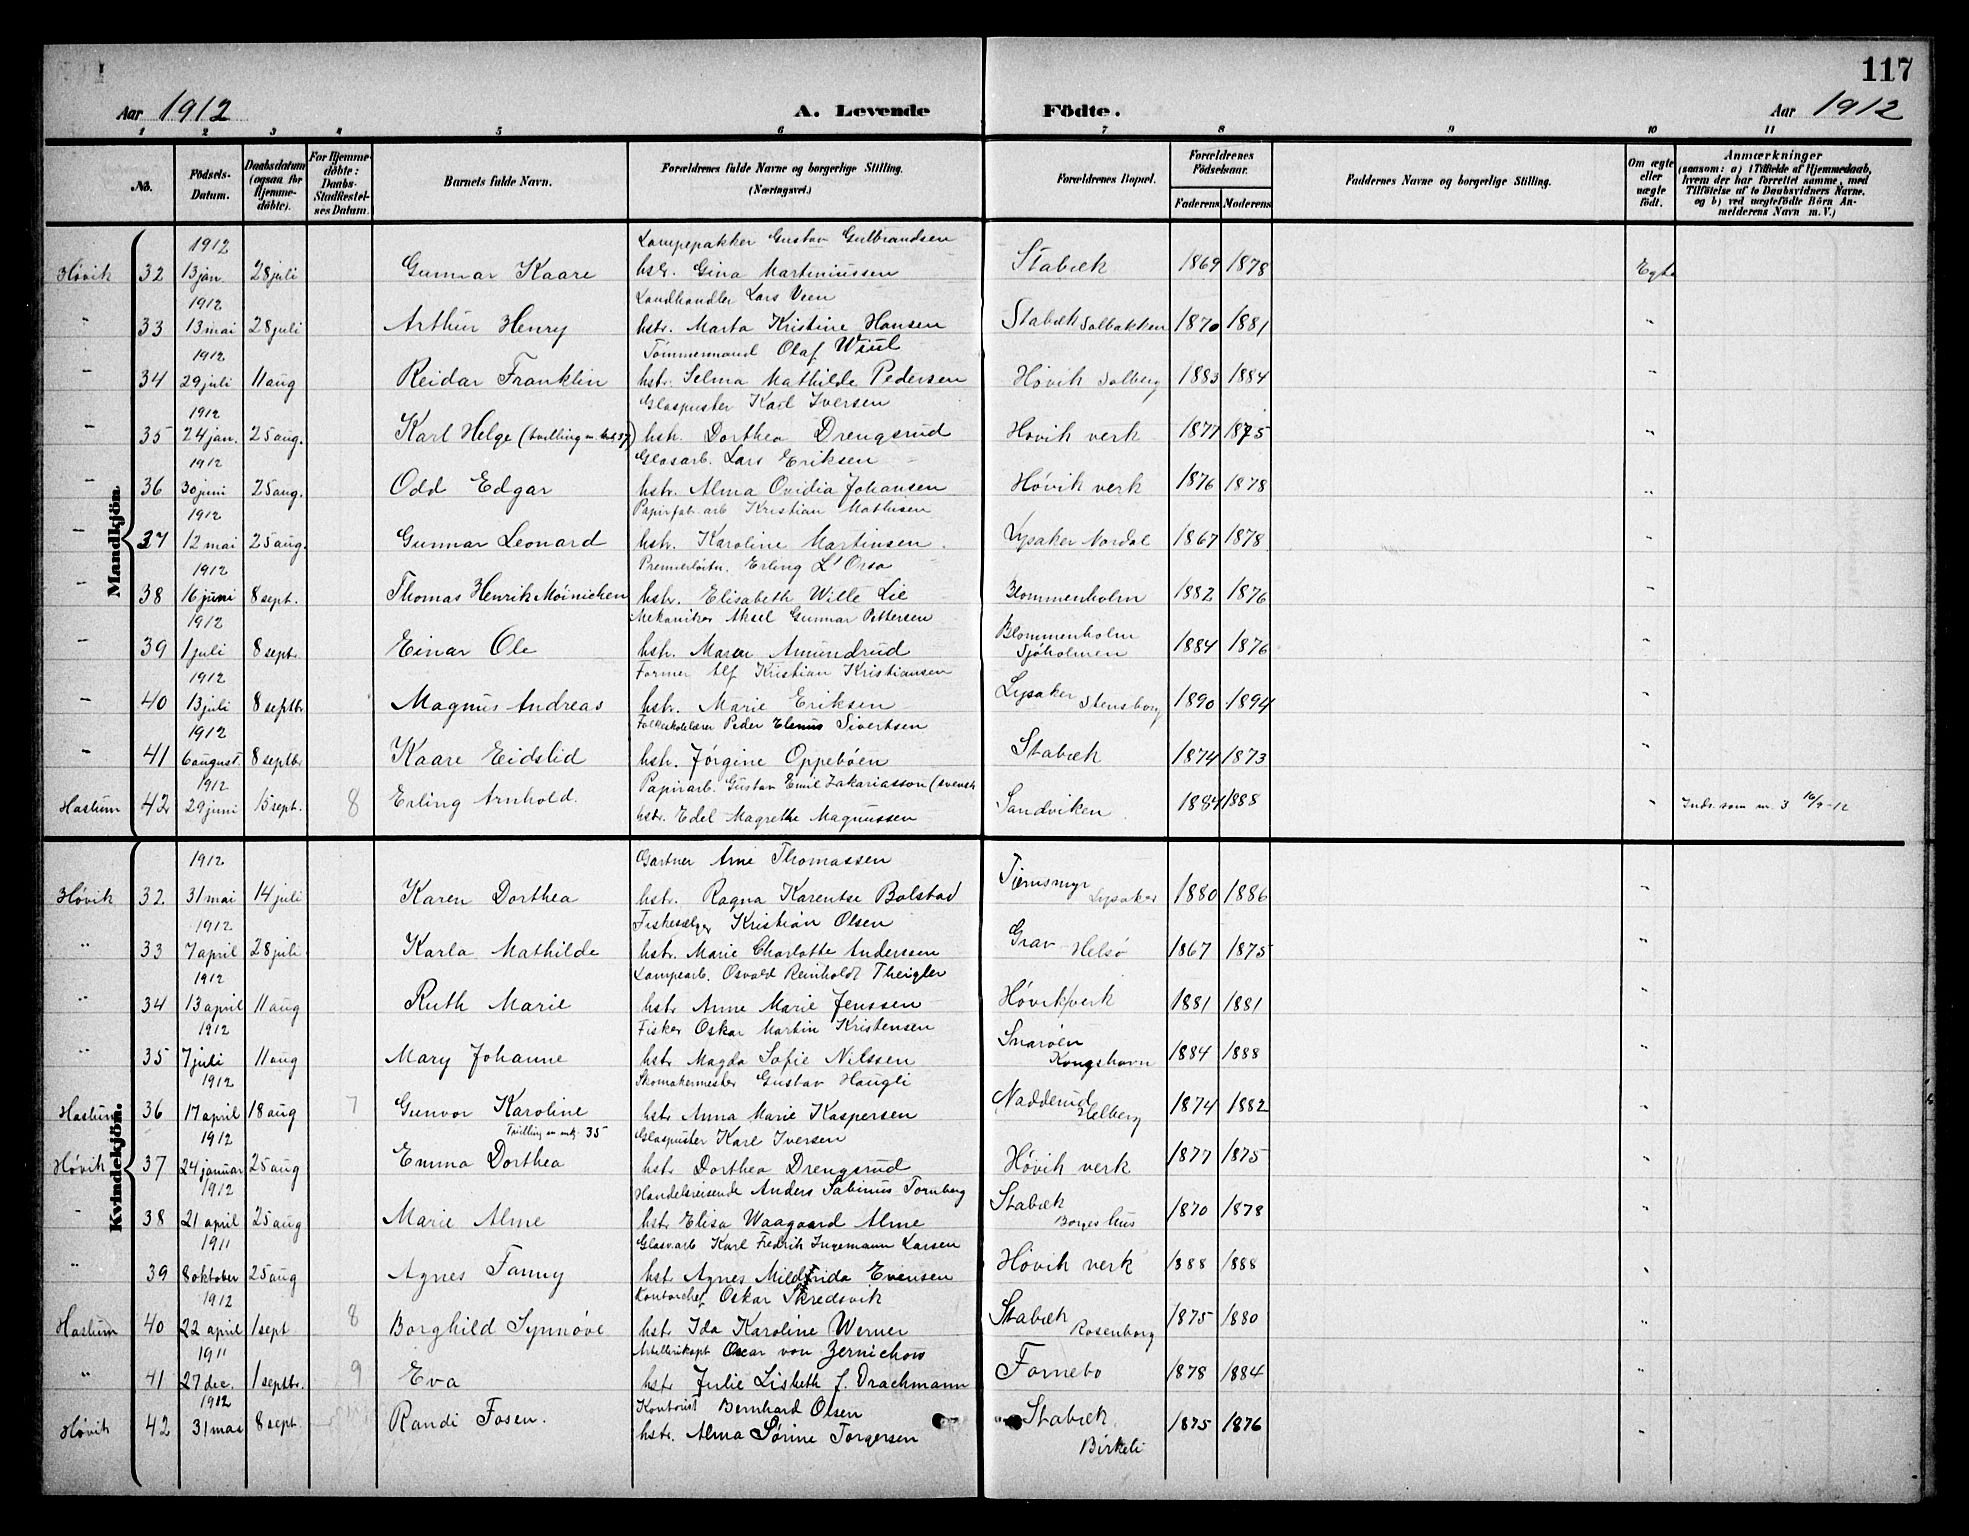 117
Aar 1912 A. Levende Fødte. Aar 1912
1 2 3 4 5 6 7 8 9 10 11
No. Födsels-Datum. Daabsdatum (ogsaa for Hjemme-döbte). For Hjemme-döbte: Daabs-Stadfæstelses Datum. Barnets fulde Navn. Forældrenes fulde Navne og borgerlige Stilling. (Næringsvei.) Forældrenes Bopæl. Forældrenes Födselsaar. Faderens Moderens Faddernes Navne og borgerlige Stilling. Om ægte eller uægte födt. Anmærkninger (saasom: a) i Tilfælde af Hjemmedaab, hvem der har forrettet samme, med Tilföielse af to Daabsvidners Navne, og b) ved uægtefödte Börn Anmelderens Navn m. V.)
Mandkjön.
1912 Lampepakker Gustav Gulbrandsen
Høvik 32 13 jan. 28 juli Gunnar Kaare hstr. Gina Martiniussen Stabæk 1869 1878 Egte
1912 Landhandler Lars Veen
" 33 13 mai 28 juli Arthur Henry hstr. Marta Kristine Hansen Stabæk Solbakken 1870 1881 "
1912 Tømmermand Olaf Wiul
" 34 29 juli 11 aug Reidar Franklin hstr. Selma Mathilde Pedersen Høvik Solberg 1883 1884 "
1912 Glaspuster Karl Iversen
" 35 24 jan. 25 aug. Karl Helge (tvilling m. kvk 37) hstr. Dorthea Drengsrud Høvik verk 1877 1875 "
1912 Glasarb. Lars Eriksen
36 30 juni 25 aug. Odd Edgar hstr. Alma Ovidia Johansen Høvik verk 1876 1878 "
1912 Papirfab. arb Kristian Mathisen
" 37 12 mai 25 aug. Gunnar Leonard hstr. Karoline Martinsen Lysaker Nordal 1867 1878 "
1912 Premierløitn. Erling L'Orsa
" 38 16 juni 8 sept. Thomas Henrik Møinichen hstr. Elisabeth Wille Lie Blommenholm 1882 1876 "
1912 Mekaniker Aksel Gunnar Pettersen
" 39 1 juli 8 sept. Einar Ole hstr. Maren Amundrud Blommenholm Sjøholmen 1884 1876 "
1912 Former Alf Kristian Kristiansen
" 40 13 juli 8 septbr Magnus Andreas hstr. Marie Eriksen Lysaker Stensborg 1890 1894 "
1912 Folkeskolelærer Peder Elenus Sivertsen
" 41 6 august. 8 septbr Kaare Eidslid hstr. Jørgine Oppebøen Stabæk 1874 1873 "
1912 Papirarb. Gustav Emil Zakariasson (svensk
Haslum 42 29 juni 15 sept. 8 Erling Arnhold. hstr. Edel Magrethe Magnussen Sandviken 1884 1888 " Inds. som m. 3 16/9-12
Kvindekjön.
1912 Gartner Arne Thomassen
Høvik 32 31 mai 14 juli Karen Dorthea hstr. Ragna Karentse Bolstad Tjernsmyr Lysaker 1880 1886 "
1912 Fiskesælger Kristian Olsen
" 33 7 april 28 juli Karla Mathilde hstr. Marie Charlotte Anderssen Grav Helsø 1867 1875 "
1912 Lampearb. Osvald Reinholdt Theigler
" 34 13 april 11 aug Ruth Marie hstr Anne Marie Jenssen Høvik verk 1881 1881 "
1912 Fisker Oskar Martin Kristensen
" 35 7 juli 11 aug Mary Johanne hstr. Magda Sofie Nilssen Snarøen Kongshavn 1884 1888 "
1912 Skomakermester Gustav Haugli
Haslum 36 17 april 18 aug 7 Gunvor Karoline hstr. Anna Marie Kaspersen Nadderud Helberg 1874 1882 "
1912 Tvilling m mk. 35 Glaspuster Karl Iversen
Høvik 37 24 januar 25 aug Emma Dorthea hstr Dorthea Drengsrud Høvik verk 1877 1875 "
1912 Handelsreisende Anders Sabinus Tornberg
" 38 21 april 25 aug Marie Alme hstr Elisa Waagaard Alme Stabæk Borgeshus 1870 1878 "
1911 Glasv.arb Karl Fredrik Ingemann Larsen
" 39 8 oktober 25 aug Agnes Fanny hstr Agnes Mildfrida Evensen Høvik verk 1888 1888 "
1912 Kontorchef Oskar Skredsvik
Haslum 40 22 april 1 sept 8 Borghild Synnøve hstr Ida Karoline Werner Stabæk Rosenborg 1875 1880 "
1911 Artillerikapt Oscar von Zernichow
" 41 27 dec. 1 septbr. 9 Eva hstr Julie Lisbeth f. Drachmann Fornebo 1878 1884 "
1912 Kontorist Bernhard Olsen
Høvik 42 31 mai 8 sept. Randi Fosen. hstr. Alma Sørine Torgersen Stabæk Birkeli 1875 1876 "